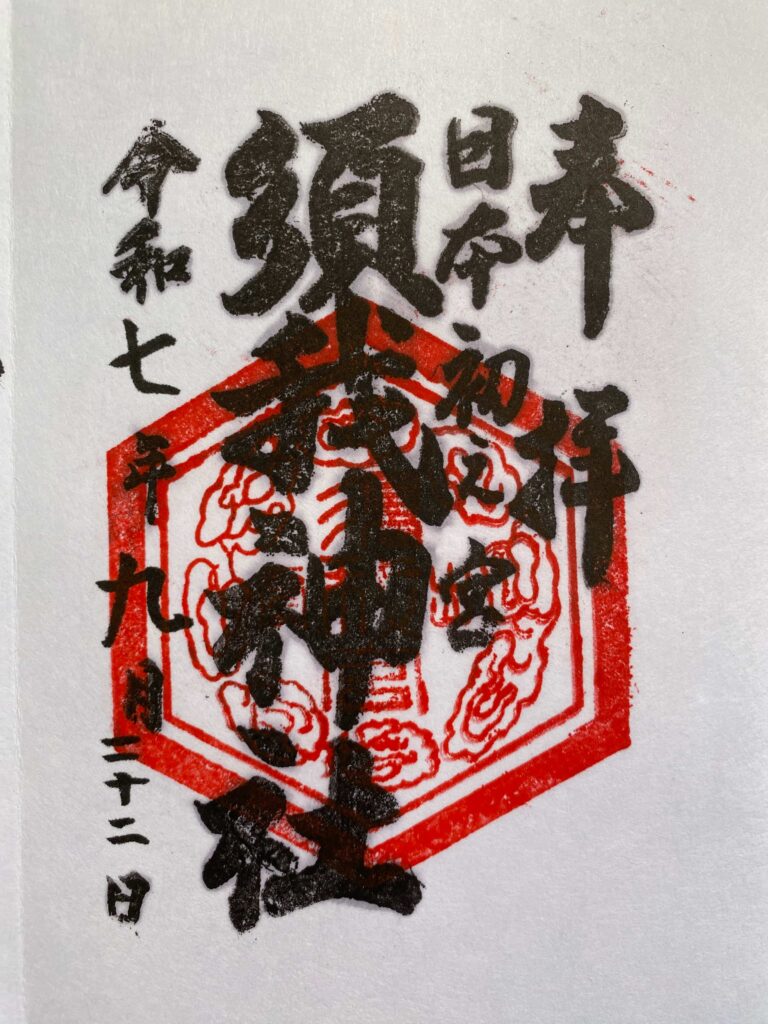 奉拝
日本初之宮
須我神社
令和七年九月二十二日